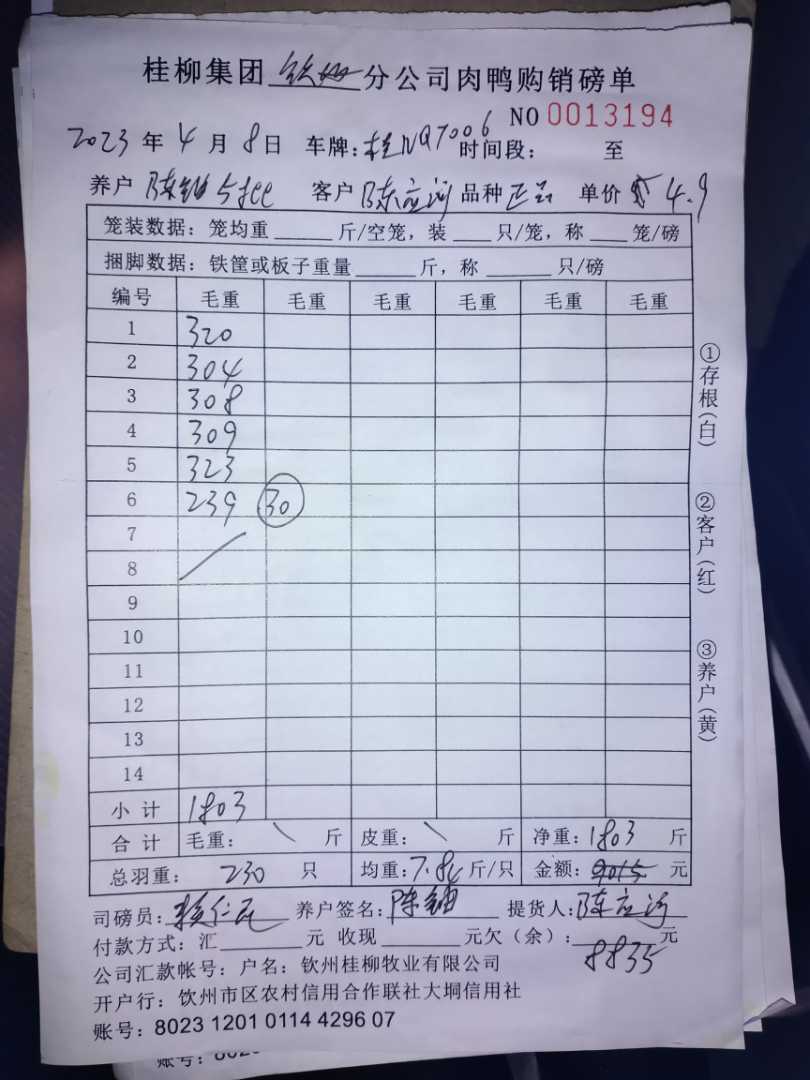 桂柳集团 钦州 分公司肉鸭购销磅单
NO 0013194
2023 年 4 月 8 日 车牌：桂NQ7006 时间段： 至
养户 陈铀 客户 陈应河 品种 单价 4.9
笼装数据：笼均重 斤/空笼，装 只/笼，称 笼/磅
捆脚数据：铁筐或板子重量 斤，称 只/磅
编号 毛重 毛重 毛重 毛重 毛重 毛重
1 320
2 304
3 308
4 309
5 323
6 239 30
7
8
9
10
11
12
13
14
小计 1803
合计 毛重： 斤 皮重： 斤 净重：1803 斤
总羽重： 230 只 均重：7.84 斤/只 金额：9015 元
司磅员： 养户签名：陈铀 提货人：陈应河
付款方式：汇 元 收现 元欠（余）： 元
8835
公司汇款帐号：户名：钦州桂柳牧业有限公司
开户行：饮州市区农村信用合作联社大垌信用社
账号：8023 1201 0114 4296 07
①存根（白）
②客户（红）
③养户（黄）
账号：8023